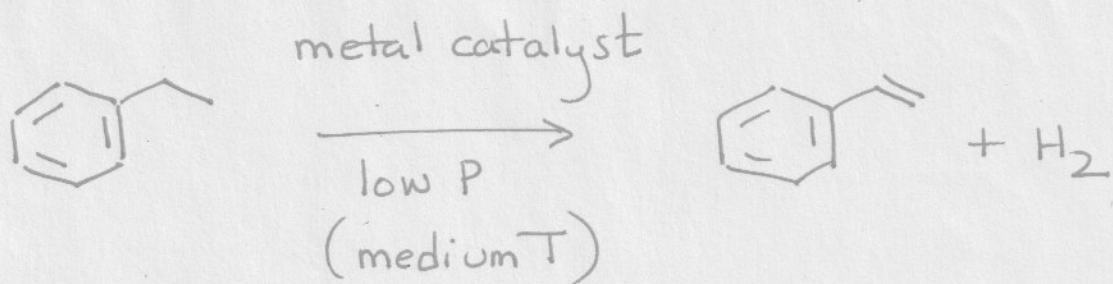 metal catalyst
low P
(medium T)
+ H2